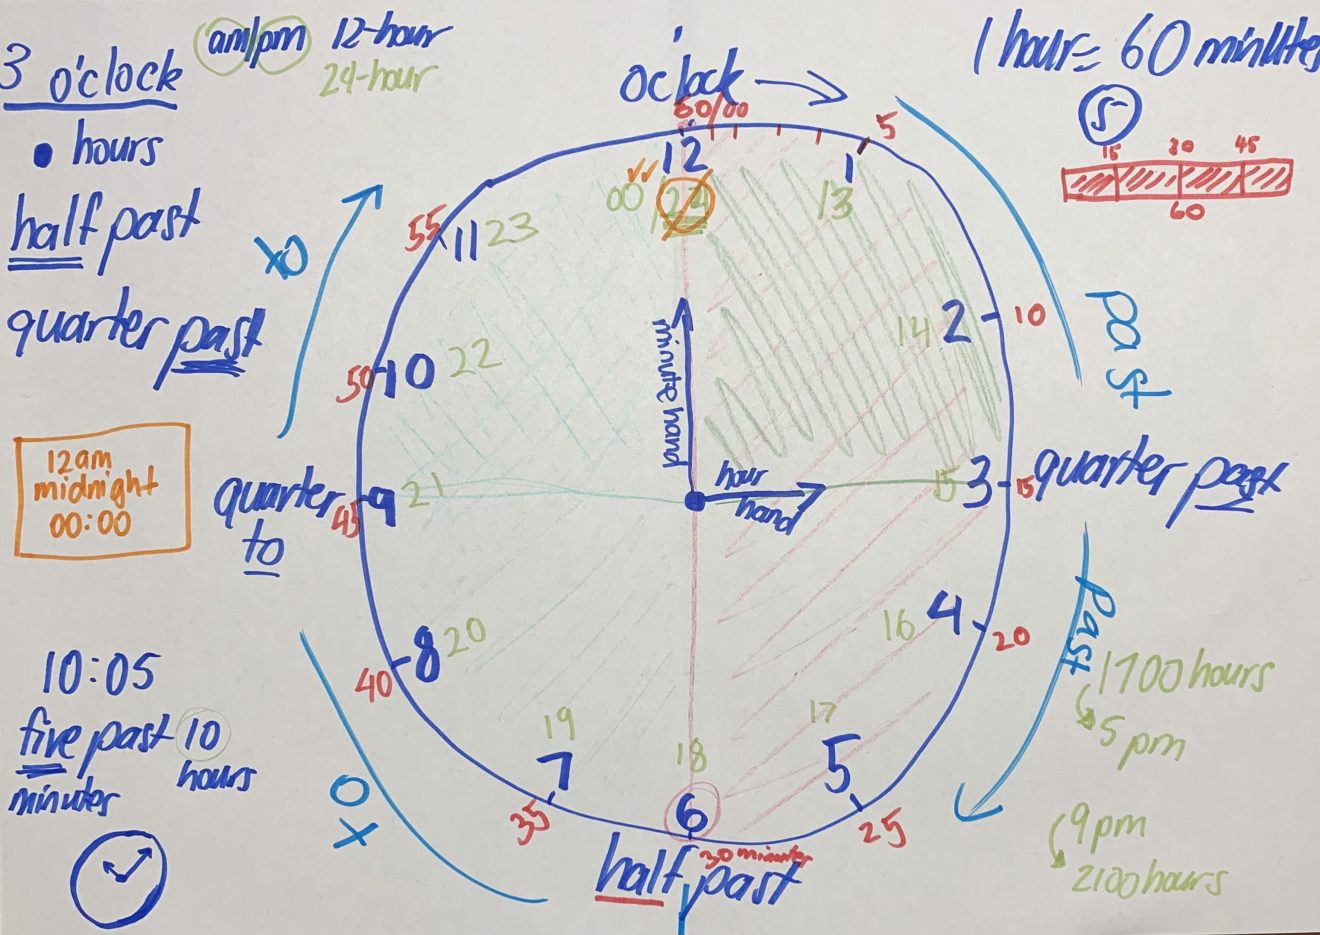 3 o'clock
am/pm 12-hour
24-hour
• hours
half past
quarter past
12am
midnight
00:00
10:05
five past 10
minutes hours
1 hour = 60 minutes
5
15 30 45
60
o'clock
60/00
5
10
15
20
25
30 minutes
35
40
45
50
55
12
1
2
3
4
5
6
7
8
9
10
11
00 24
13
14
15
16
17
18
19
20
21
22
23
minute hand
hour
hand
past
quarter past
past
half past
to
quarter
to
to
1700 hours
5 pm
9 pm
2100 hours